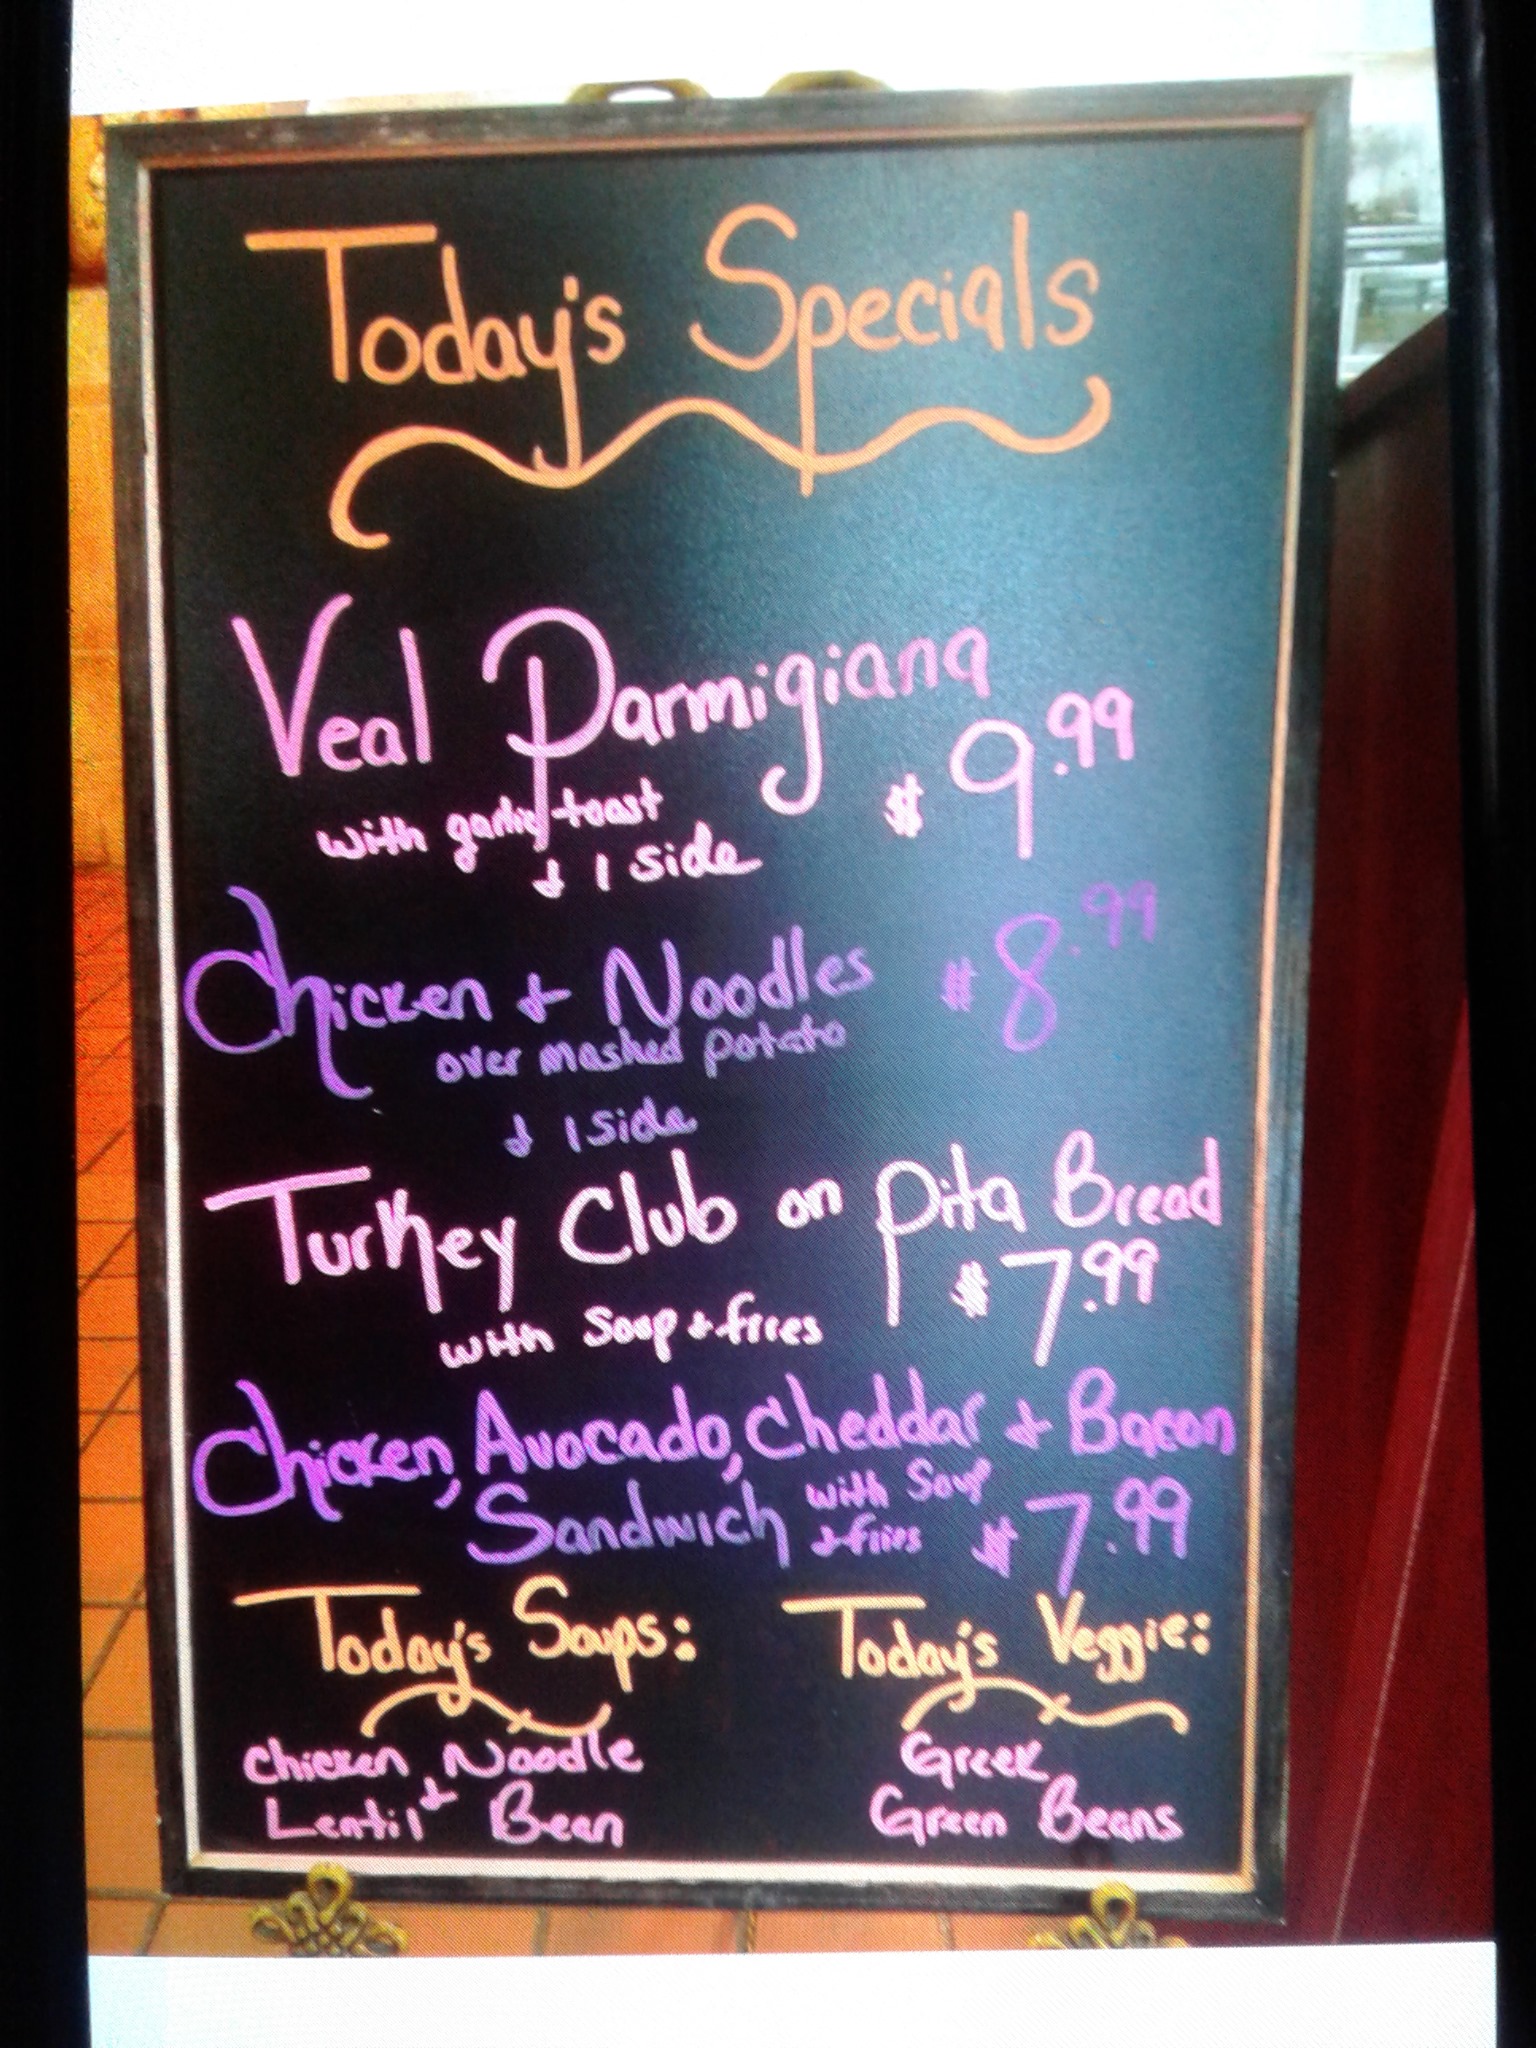 Today's Specials
Veal Parmigiana
$9.99
with garlic toast
& 1 side
Chicken & Noodles $8.99
over mashed potato
& 1 side
Turkey Club on Pita Bread
$7.99
with soup & fries
Chicken, Avocado, Cheddar & Bacon
Sandwich with Soup
& fries $7.99
Today's Soups:
Chicken Noodle
&
Lentil Bean
Today's Veggie:
Greek
Green Beans